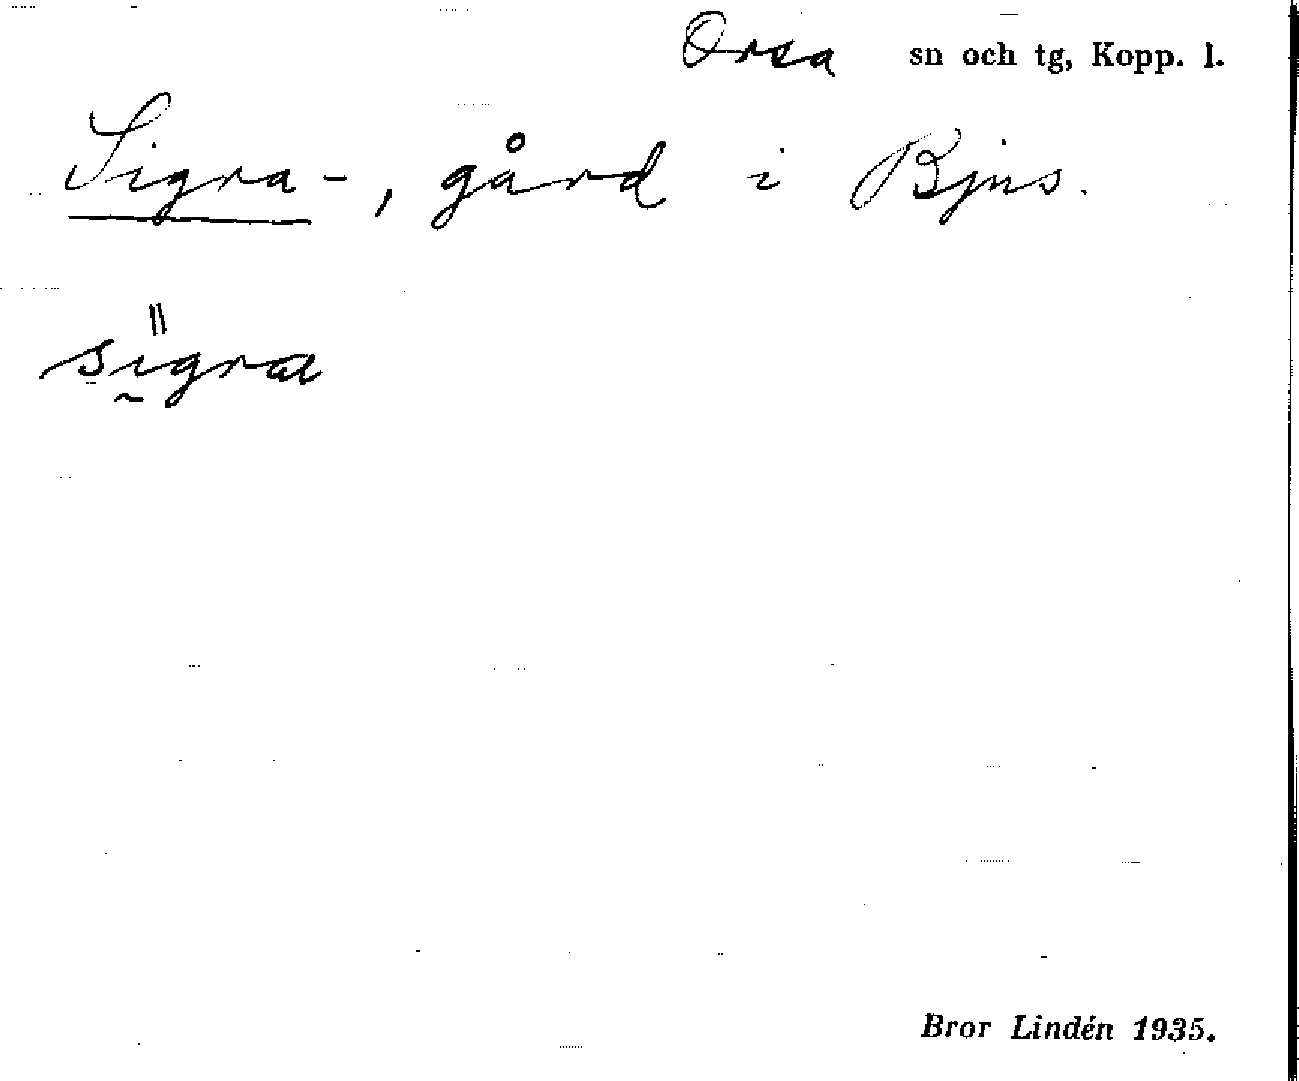 Orsa sn och tg, Kopp. l.
Sigra-, gård i Bjns.
sigra
Bror Lindén 1935.